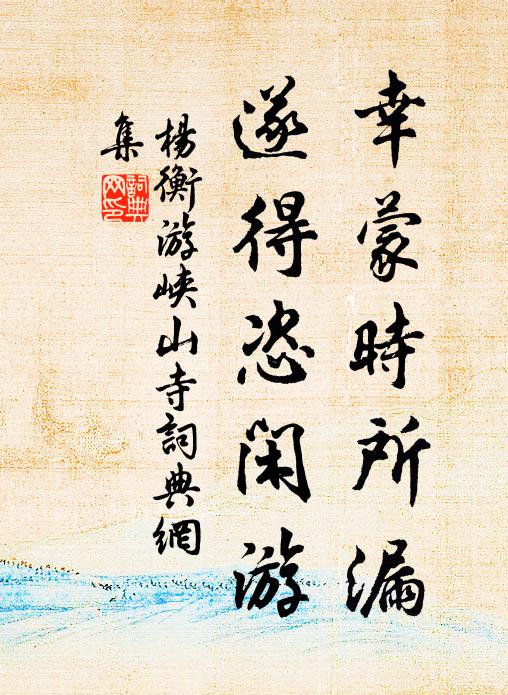 幸蒙時所漏
遂得恣閑游
楊衡游峡山寺詞典網
集
詞典
网印